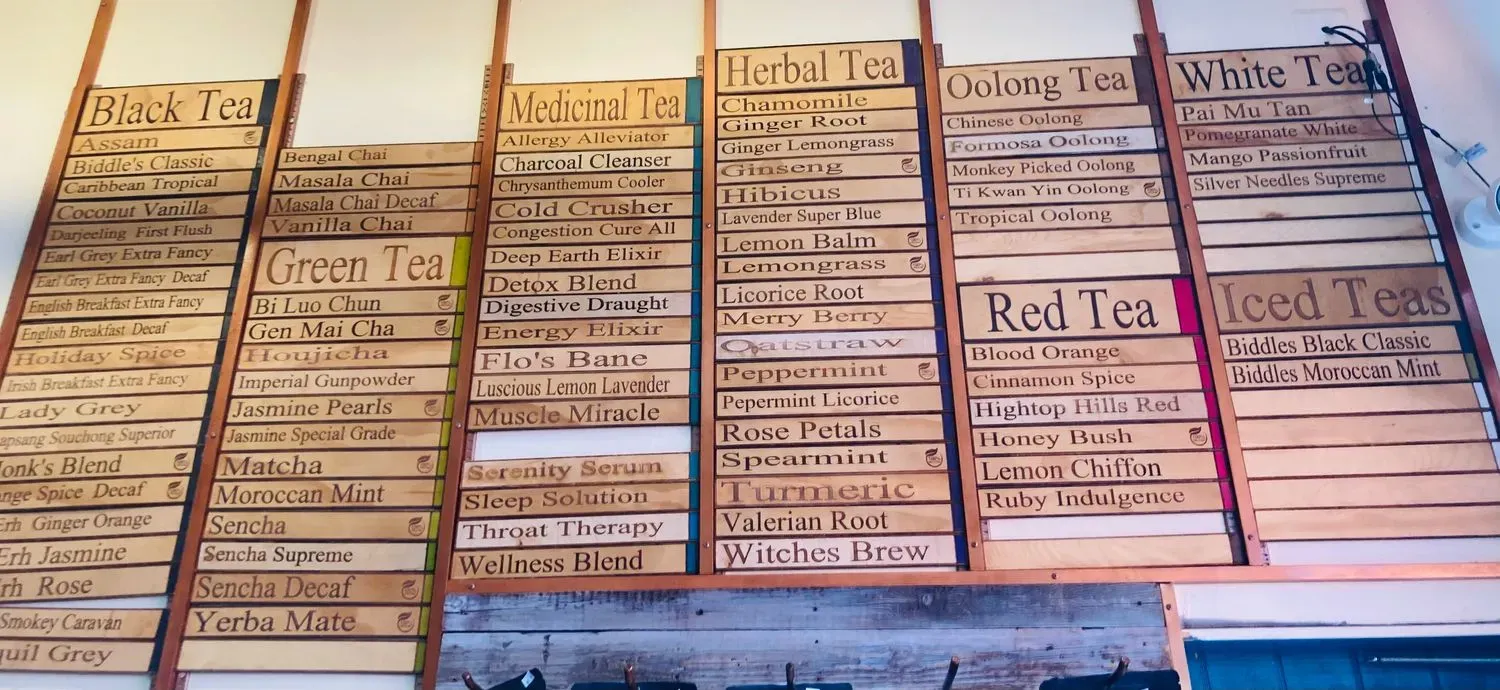 Black Tea
Assam
Biddle's Classic
Caribbean Tropical
Coconut Vanilla
Darjeeling First Flush
Earl Grey Extra Fancy
Earl Grey Extra Fancy Decaf
English Breakfast Extra Fancy
English Breakfast Decaf
Holiday Spice
Irish Breakfast Extra Fancy
Lady Grey
apsang Souchong Superior
onk's Blend
nge Spice Decaf
Erh Ginger Orange
Erh Jasmine
rh Rose
Smokey Caravan
quil Grey
Bengal Chai
Masala Chai
Masala Chai Decaf
Vanilla Chai
Green Tea
Bi Luo Chun
Gen Mai Cha
Houjicha
Imperial Gunpowder
Jasmine Pearls
Jasmine Special Grade
Matcha
Moroccan Mint
Sencha
Sencha Supreme
Sencha Decaf
Yerba Mate
Medicinal Tea
Allergy Alleviator
Charcoal Cleanser
Chrysanthemum Cooler
Cold Crusher
Congestion Cure All
Deep Earth Elixir
Detox Blend
Digestive Draught
Energy Elixir
Flo's Bane
Luscious Lemon Lavender
Muscle Miracle
Serenity Serum
Sleep Solution
Throat Therapy
Wellness Blend
Herbal Tea
Chamomile
Ginger Root
Ginger Lemongrass
Ginseng
Hibicus
Lavender Super Blue
Lemon Balm
Lemongrass
Licorice Root
Merry Berry
Oatstraw
Peppermint
Pepermint Licorice
Rose Petals
Spearmint
Turmeric
Valerian Root
Witches Brew
Oolong Tea
Chinese Oolong
Formosa Oolong
Monkey Picked Oolong
Ti Kwan Yin Oolong
Tropical Oolong
Red Tea
Blood Orange
Cinnamon Spice
Hightop Hills Red
Honey Bush
Lemon Chiffon
Ruby Indulgence
White Tea
Pai Mu Tan
Pomegranate White
Mango Passionfruit
Silver Needles Supreme
Iced Teas
Biddles Black Classic
Biddles Moroccan Mint